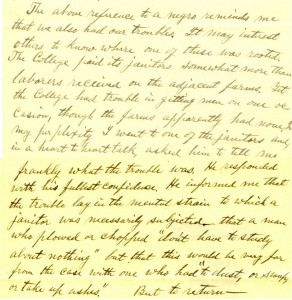 The above reference to a negro reminds me
that we also had our troubles. It may interest
others to know where one of these was rooted.
The College paid its janitors somewhat more than
laborers received on the adjacent farms. Yet
the College had trouble in getting men on one oc
casion, though the farms apparently had none. In
my perplexity I went to one of the janitors and,
in a heart to heart talk asked him to tell me
frankly what the trouble was. He responded
with his fullest confidence. He informed me that
the trouble lay in the mental strain to which a
janitor was necessarily subjected that a man
who plowed or chopped "don't have to study
about nothing" but that this would be very far
from the case with one who had "to dust, or sweep
or take up ashes." But to return—